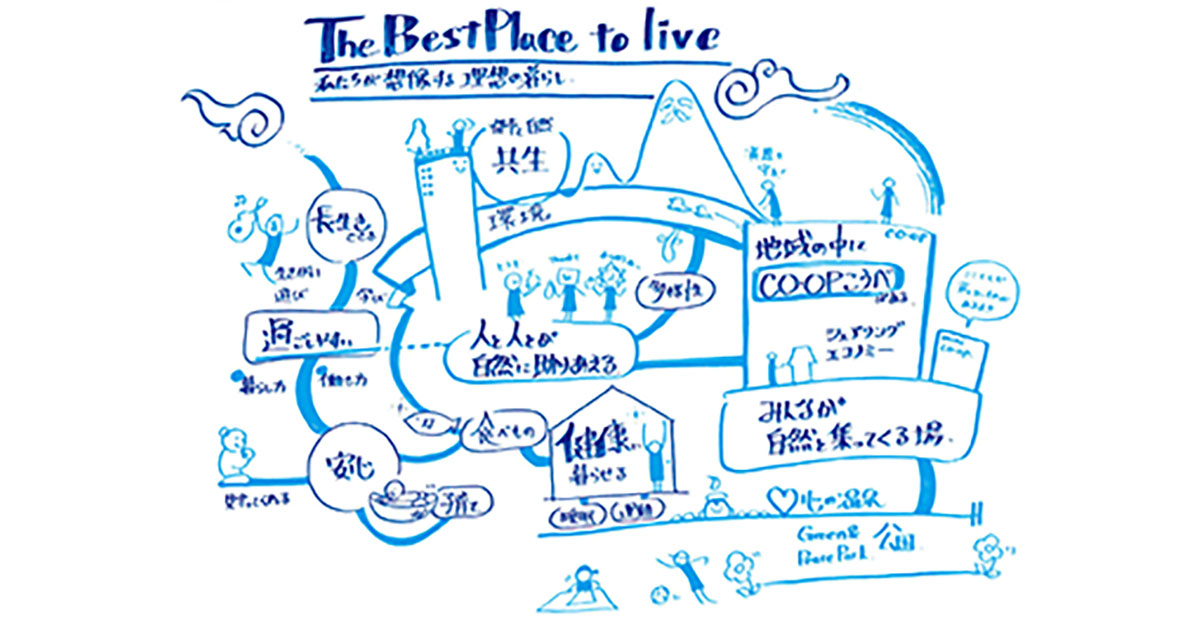 The Best Place to live
私たちが想像する理想の暮らし
都市と自然
共生
環境
長生き
できる
生きがい
遊び
学び
過ごしやすい
暮らし力
行動する力
安心
見守ってくれる
子育て
多様性
人と人とが
自然に助けあえる
食べもの
健康に
暮らせる
地域の中に
CO・OPこうべ
がある
CO・OP
シェアリング
エコノミー
みんなが
自然と集ってくる場
心の温泉
Green&
Peace Park
公園